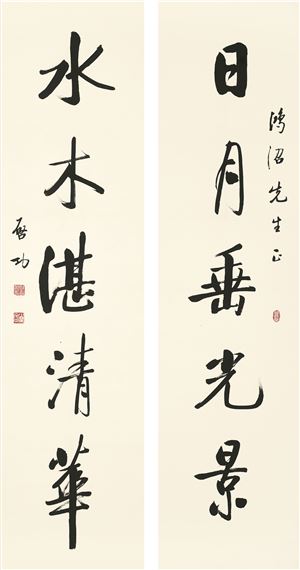 日月垂光景
鸿沼先生正
水木湛清華
启功